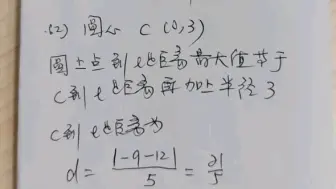 (2) 圆心 C (0,3)
圆上点到l的距离最大值等于
C到l的距离再加上半径3
C到l的距离为
d = |-9-12| / 5 = 21/5